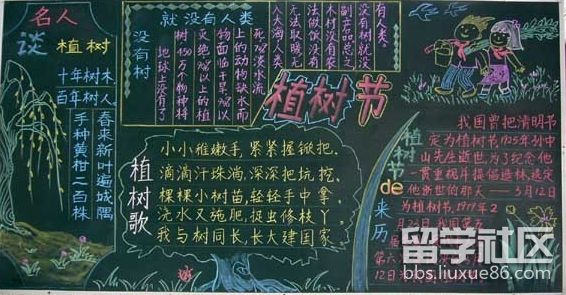 名人
谈植树
十年树木,
百年树人
手种黄柑二百株
春来新叶遍城隅
没有树
就没有人类
地球上没有了
树450万个物种将
灭绝90%以上的植
物面临干旱90%以
上的动物缺水而
死70%淡水流
人大海人类
无法取暖无
法做饭没有
木材没有农
副产品总之
没有树就没
有人类。
植树节
植树歌
小小稚嫩手,紧紧握锨把,
滴滴汗珠淌,深深把坑挖,
棵棵小树苗,轻轻手中拿,
浇水又施肥,捉虫修枝丫,
我与树同长,长大建国家
植树节de来历
我国曾把清明节
定为植树节1925年孙中
山先生逝世,为了纪念他
一贯重视并提倡造林,规定
他逝世的那天——3月12日
为植树节,1979年2
月23日我国第
第六
12日
留学社区
bbs.liuxue86.com